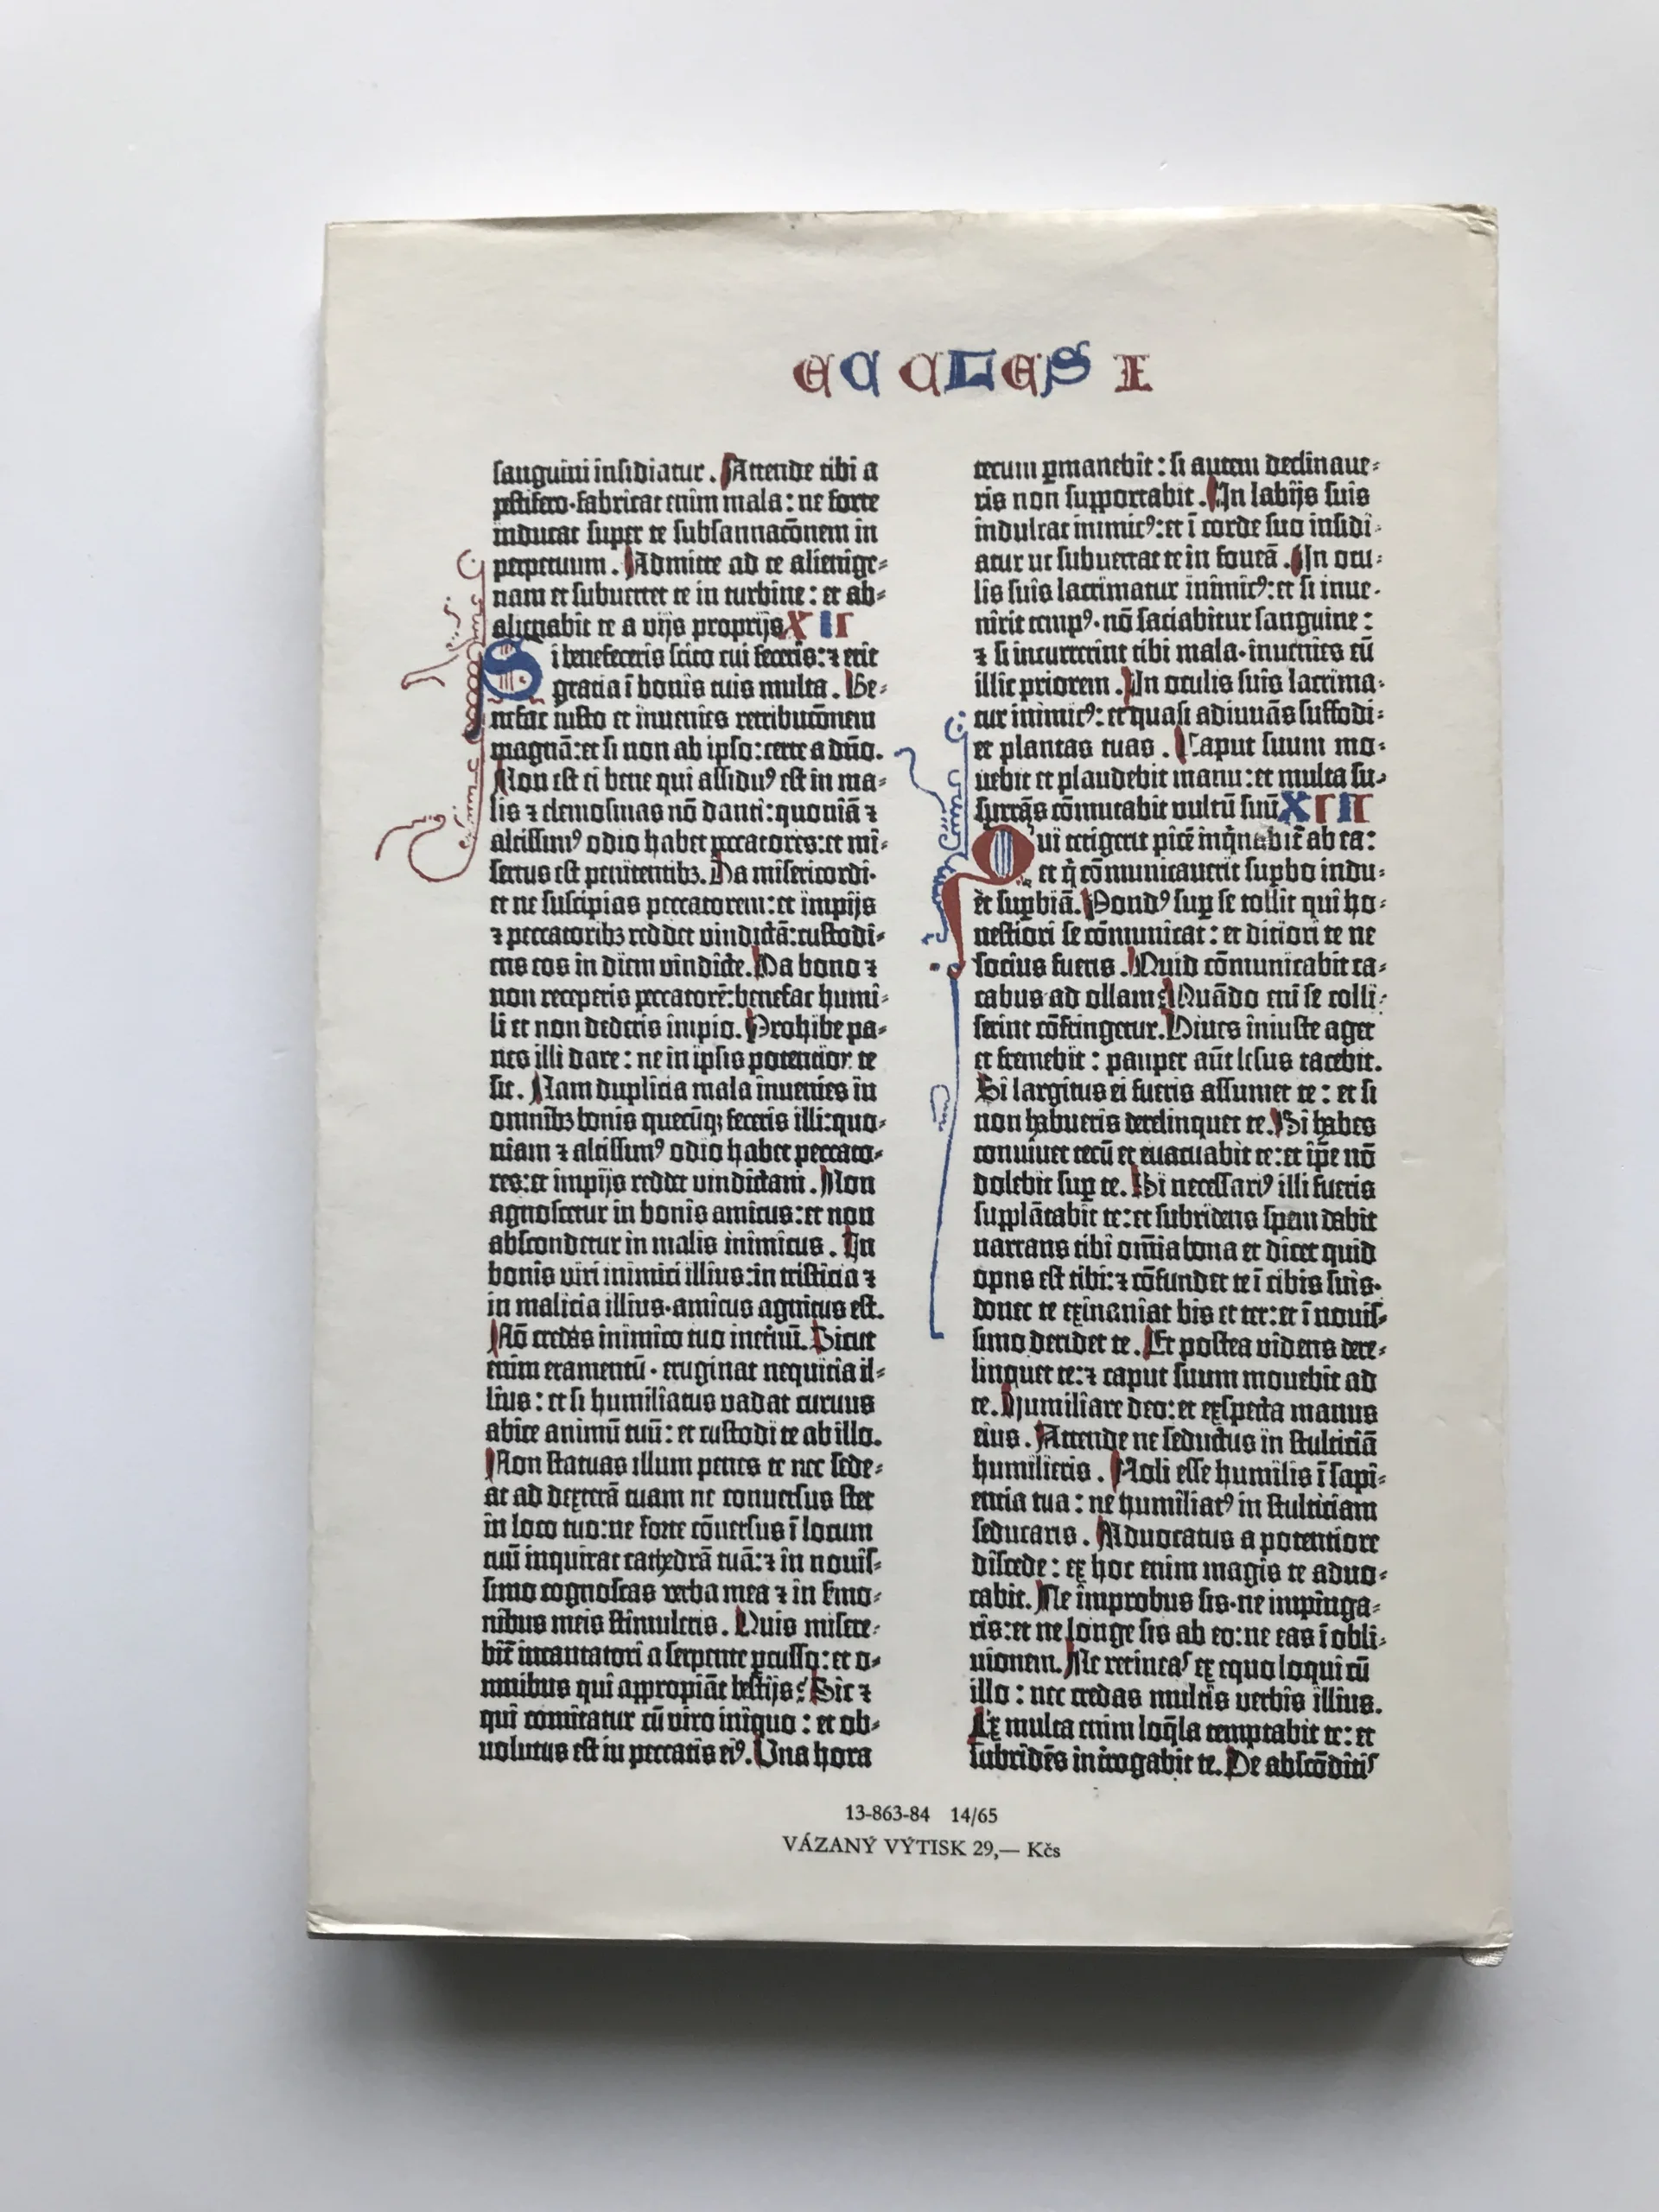 ECCLESI
sanguini insidiatur. Attende tibi a
pestifero·fabricat enim mala: ne forte
inducat super te subsannacōnem in
perpetuum. Admitte ad te alienige-
nam et subvertet te in turbine: et ab-
alienabit te a vijs proprijs XII
Si benefeceris scito cui feceris: ⁊ erit
gratia ī bonis tuis multa. Be-
nefac iusto et invenies retribucōnem
magnā: et si non ab ipso: certe a dño.
Non est ei bene qui assiduꝰ est in ma-
lis ⁊ elemosinas nō danti: quoniā ⁊
altissimꝰ odio habet peccatores: et mi-
sertus est penitentibꝫ. Da misericordi-
et ne suscipias peccatorem: et impijs
⁊ peccatoribꝫ reddet vindictā: custodi-
ens eos in diem vindicte. Da bono ⁊
non receperis peccatorē: benefac humi-
li et non dederis impio. Prohibe pa-
nes illi dare: ne in ipsis potentior te
sit. Nam duplicia mala invenies in
omnibꝫ bonis quecūqꝫ feceris illi: quo-
niam ⁊ altissimꝰ odio habet peccato-
res: et impijs reddet vindictam. Non
agnoscetur in bonis amicus: et non
abscondetur in malis inimicus. In
bonis viri inimici illius: in tristicia ⁊
in malicia illius·amicus agnitus est.
Nō credas inimico tuo ineternū. Sicut
enim eramentū·eruginat nequitia il-
lius: et si humiliatus vadat curvus
abice animū tuū: et custodi te ab illo.
Non statuas illum penes te nec sede-
at ad dexterā tuam ne conversus stet
in loco tuo: ne forte cōversus ī locum
tuū inquirat cathedrā tuā: ⁊ in novis-
simo cognoscas verba mea ⁊ in ẜmo-
nibus meis stimuleris. Quis misere-
bit̄ incantatori a serpente ꝑcusso: et o-
mnibus qui appropiāt bestijs? Sic ⁊
qui comitatur cū viro iniquo: et ob-
volutus est in peccatis eiꝰ. Una hora
tecum ꝑmanebit: si autem declinave-
ris non supportabit. In labijs suis
indulcat inimicꝰ: et ī corde suo insidi-
atur ut subvertat te in foveā. In ocu-
lis suis lacrimatur inimicꝰ: et si inve-
nerit tempꝰ·nō saciabitur sanguine:
⁊ si incurrerint tibi mala·invenies eū
illic priorem. In oculis suis lacrima-
tur inimicꝰ: et quasi adiuvās suffodi-
et plantas tuas. Caput suum mo-
vebit et plaudebit manu: et multa su-
surrās cōmutabit vultū suū XIII
Qui tetigerit picē inq̄nabit̄ ab ea:
et q̄ cōmunicaverit suꝑbo indu-
et suꝑbiā. Pondꝰ suꝑ se tollit qui ho-
nestiori se cōmunicat: et ditiori te ne
socius fueris. Quid cōmunicabit ca-
cabus ad ollam? Quādo eni se colli-
serint cōfringetur. Dives iniuste aget
et fremebit: pauper aūt lesus tacebit.
Si largitus ei fueris assumet te: et si
non habueris derelinquet te. Si habes
convivet tecū et evacuabit te: et ip̄e nō
dolebit suꝑ te. Si necessariꝰ illi fueris
supplātabit te: et subridens spem dabit
narrans tibi om̄ia bona et dicet quid
opus est tibi: ⁊ cōfundet te ī cibis suis·
donec te exinaniat bis et ter: et ī novis-
simo deridet te. Et postea videns dere-
linquet te: ⁊ caput suum movebit ad
te. Humiliare deo: et exspecta manus
eius. Attende ne seductus in stulticiā
humilieris. Noli esse humilis ī sapi-
entia tua: ne humiliatꝰ in stulticiam
seducaris. Advocatus a potentiore
discede: ex hoc enim magis te advo-
cabit. Ne improbus sis·ne impinga-
ris: et ne longe sis ab eo: ne eas ī obli-
vionem. Ne retineas ex equo loqui cū
illo: nec credas multis verbis illius.
Ex multa enim loq̄la temptabit te: et
subridēs int̄rogabit te. De abscōditis
13-863-84 14/65
VÁZANÝ VÝTISK 29,— Kčs